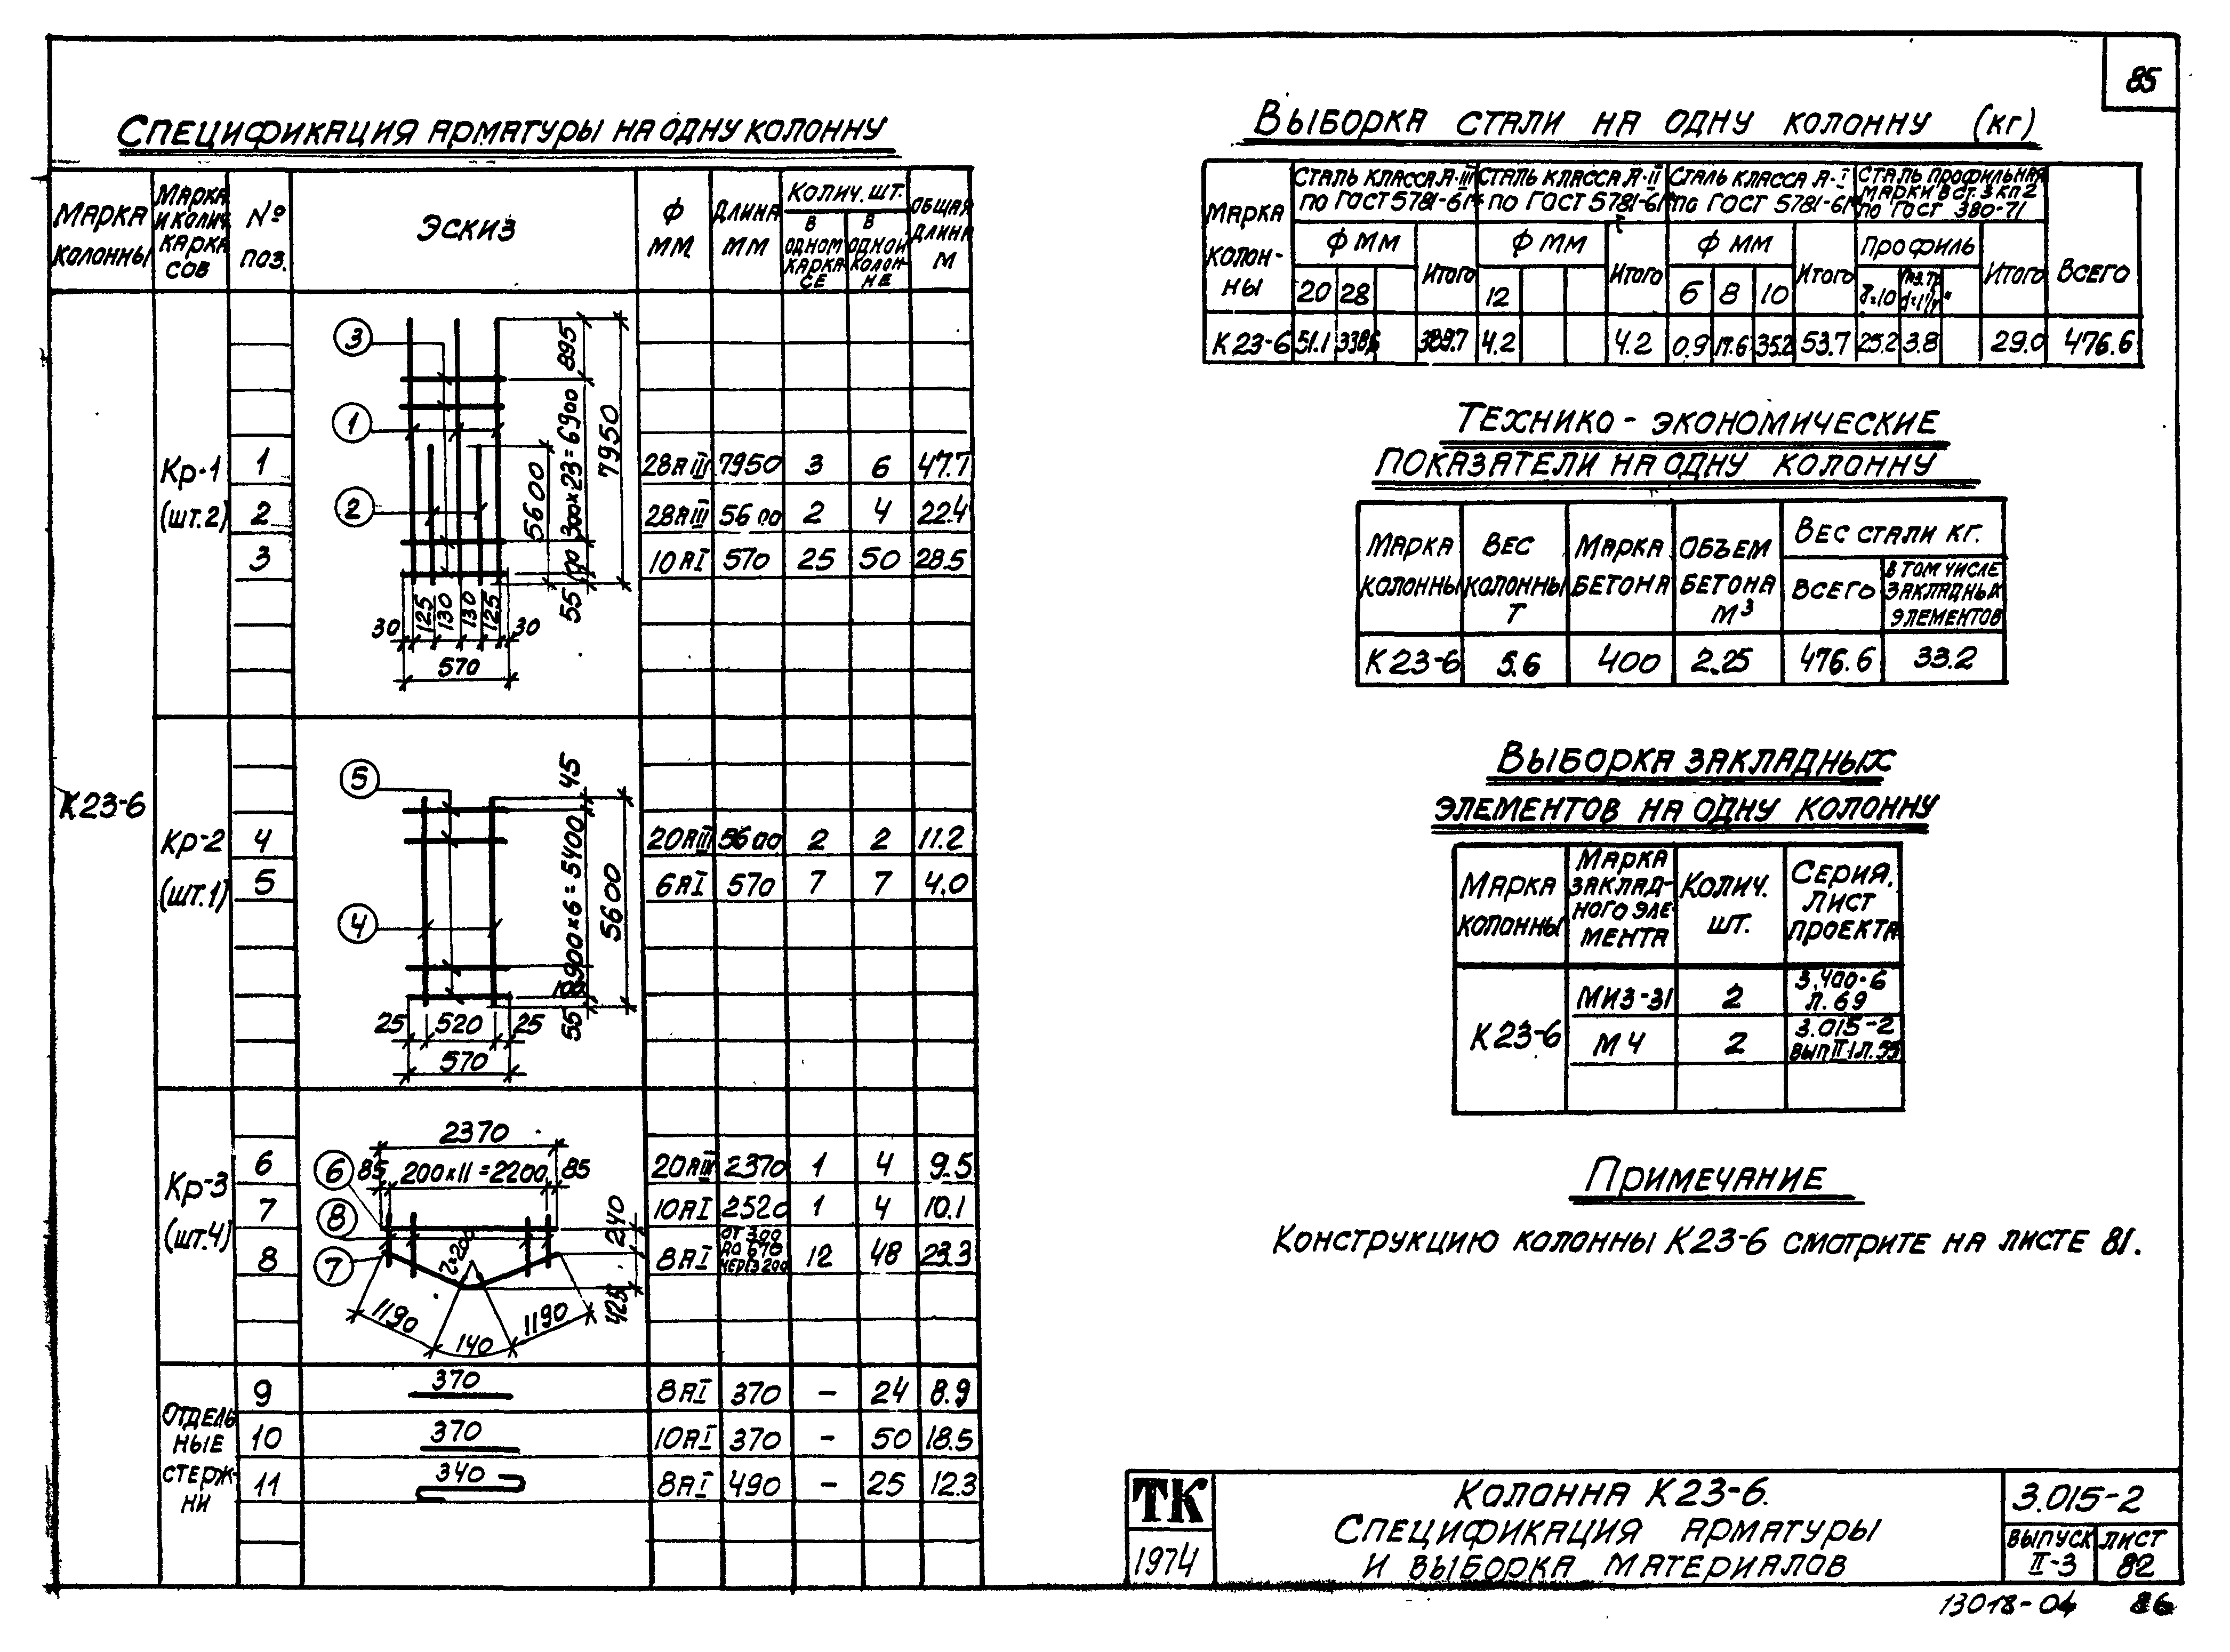 85
Спецификация арматуры на одну колонну
Марка колонны
Марка и колич. каркасов
№ поз.
Эскиз
Ф мм
Длина мм
Колич. шт.
В одном каркасе
В одной колонне
Общая длина м
К23-6
Кр-1 (шт.2)
1 28АIII 7950 3 6 47.7
2 28АIII 5600 2 4 22.4
3 10АI 570 25 50 28.5
3
1
2
895
300×23=6900
7950
5600
100
55
30 125 130 130 125 30
570
Кр-2 (шт.1)
4 20АIII 5600 2 2 11.2
5 6АI 570 7 7 4.0
5
4
45
900×6=5400
5600
100
55
25 520 25
570
Кр-3 (шт.4)
6 20АIII 2370 1 4 9.5
7 10АI 2520 1 4 10.1
8 8АI от 300 до 670 через 200 12 48 23.3
2370
85 200×11=2200 85
6
8
7
r=200
240
425
1190 140 1190
Отдельные стержни
9 370 8АI 370 – 24 8.9
10 370 10АI 370 – 50 18.5
11 340 8АI 490 – 25 12.3
Выборка стали на одну колонну (кг)
Марка колонны
Сталь класса А-III по ГОСТ 5781-61*
Сталь класса А-II по ГОСТ 5781-61*
Сталь класса А-I по ГОСТ 5781-61*
Сталь профильная марки В Ст. 3 кп 2 по ГОСТ 380-71
Всего
Ф мм Итого Ф мм Итого Ф мм Итого Профиль Итого
20 28 12 6 8 10 δ=10
К23-6 51.1 338,6 389.7 4.2 4.2 0.9 17.6 35.2 53.7 25.2 3.8 29.0 476.6
Технико-экономические
показатели на одну колонну
Марка колонны
Вес колонны т
Марка бетона
Объем бетона м³
Вес стали кг.
Всего
В том числе закладных элементов
К23-6 5.6 400 2.25 476.6 33.2
Выборка закладных
элементов на одну колонну
Марка колонны
Марка закладного элемента
Колич. шт.
Серия, лист проекта
К23-6
МИ3-31 2 3.400-6 л. 69
М4 2 3.015-2 вып II-1 л. 55
Примечание
Конструкцию колонны К23-6 смотрите на листе 81.
ТК
1974
Колонна К23-6.
Спецификация арматуры
и выборка материалов
3.015-2
Выпуск II-3
Лист 82
13018-04 86